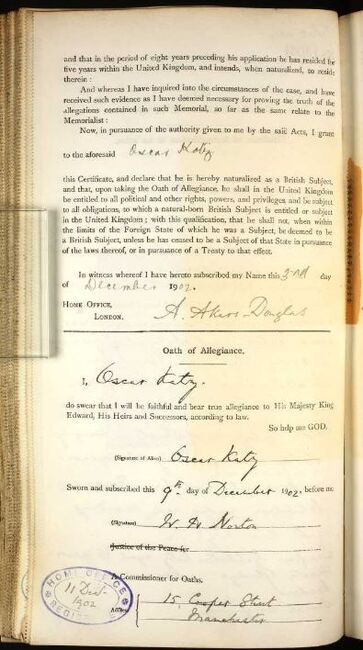 and that in the period of eight years preceding his application he has resided for
five years within the United Kingdom, and intends, when naturalized, to reside
therein :
And whereas I have inquired into the circumstances of the case, and have
received such evidence as I have deemed necessary for proving the truth of the
allegations contained in such Memorial, so far as the same relate to the
Memorialist :
Now, in pursuance of the authority given to me by the said Acts, I grant
to the aforesaid Oscar Katz
this Certificate, and declare that he is hereby naturalized as a British Subject,
and that, upon taking the Oath of Allegiance, he shall in the United Kingdom
be entitled to all political and other rights, powers, and privileges, and be subject
to all obligations, to which a natural-born British Subject is entitled or subject
in the United Kingdom ; with this qualification, that he shall not, when within
the limits of the Foreign State of which he was a Subject, be deemed to be
a British Subject, unless he has ceased to be a Subject of that State in pursuance
of the laws thereof, or in pursuance of a Treaty to that effect.
In witness whereof I have hereto subscribed my Name this 3rd day
of December 1902.
HOME OFFICE,
LONDON. A. Akers-Douglas
Oath of Allegiance.
I, Oscar Katz.
do swear that I will be faithful and bear true allegiance to His Majesty King
Edward, His Heirs and Successors, according to law.
So help me GOD.
(Signature of Alien) Oscar Katz
Sworn and subscribed this 9th day of December 1902. before me
(Signature) W. H. Norton
Justice of the Peace for
A Commissioner for Oaths.
Address 15, Cooper Street
Manchester
HOME OFFICE
11 Dec
1902